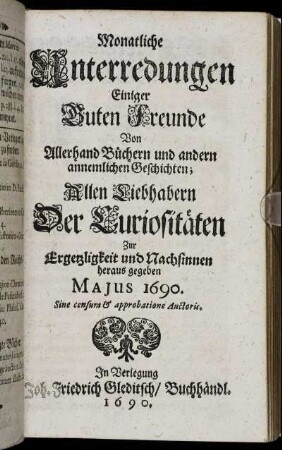 Monatliche
Unterredungen
Einiger
Guten Freunde
Von
Allerhand Büchern und andern
annemlichen Geschichten;
Allen Liebhabern
Der Curiositäten
Zur
Ergetzligkeit und Nachsinnen
heraus gegeben
MAJUS 1690.
Sine censura & approbatione Auctoris.
In Verlegung
Joh. Friedrich Gleditsch/ Buchhändl.
1690.